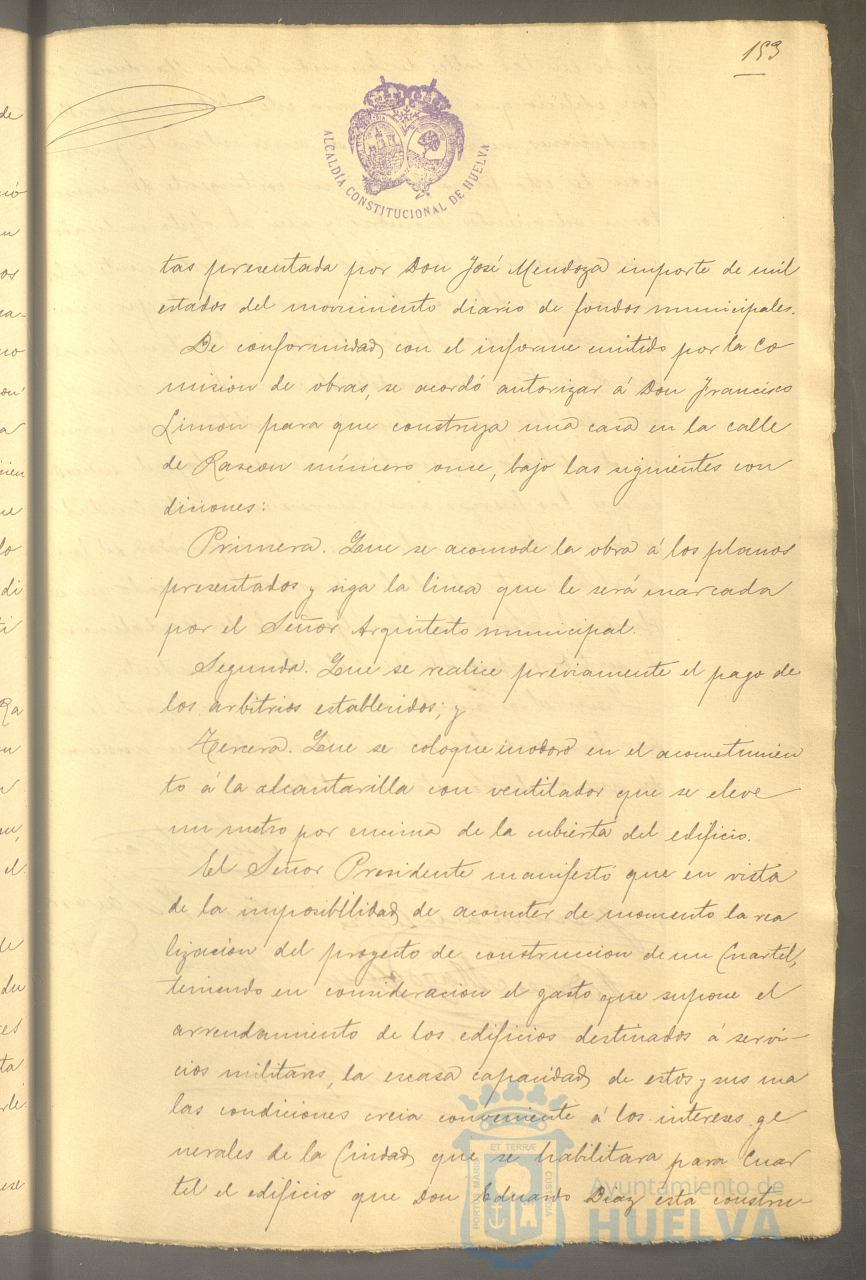 153
ALCALDÍA CONSTITUCIONAL DE HUELVA
tas presentada por Don José Mendoza importe de mil
estados del movimiento diario de fondos municipales.
De conformidad con el informe emitido por la Co
mision de obras, se acordó autorizar á Don Francisco
Limon para que construya una casa en la calle
de Rascon número once, bajo las siguientes con
diciones:
Primera. Que se acomode la obra á los planos
presentados y siga la linea que le será marcada
por el Señor Arquitecto municipal.
Segunda. Que se realice préviamente el pago de
los arbitrios establecidos; y
Tercera. Que se coloque inodoro en el acometimien
to á la alcantarilla con ventilador que se eleve
un metro por encima de la cubierta del edificio.
El Señor Presidente manifestó que en vista
de la imposibilidad de acometer de momento la rea
lizacion del proyecto de construccion de un Cuartel,
teniendo en consideracion el gasto que supone el
arrendamiento de los edificios destinados á servi-
cios militares, la escasa capacidad de estos y sus ma
las condiciones creia conveniente á los intereses ge
nerales de la Ciudad que se habilitara para Cuar
tel el edificio que Don Eduardo Diaz está constru-
PORTUS MARIS ET TERRÆ CUSTODIA
Ayuntamiento de
HUELVA